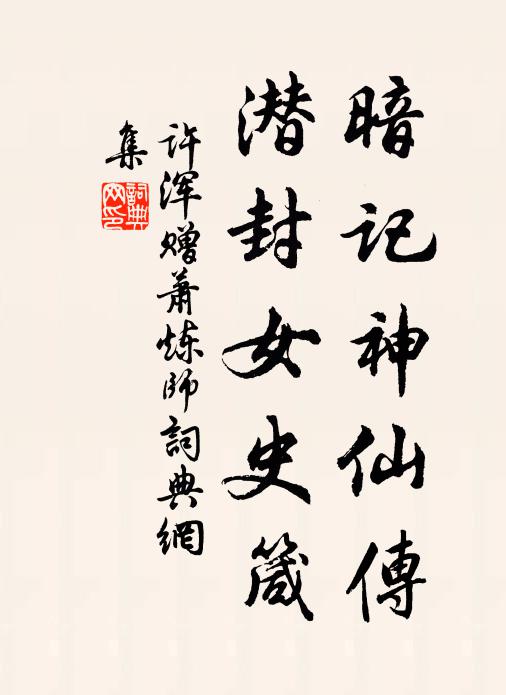 暗记神仙傳
潜封女史箴
许浑赠萧炼师詞典網
集
詞典网印